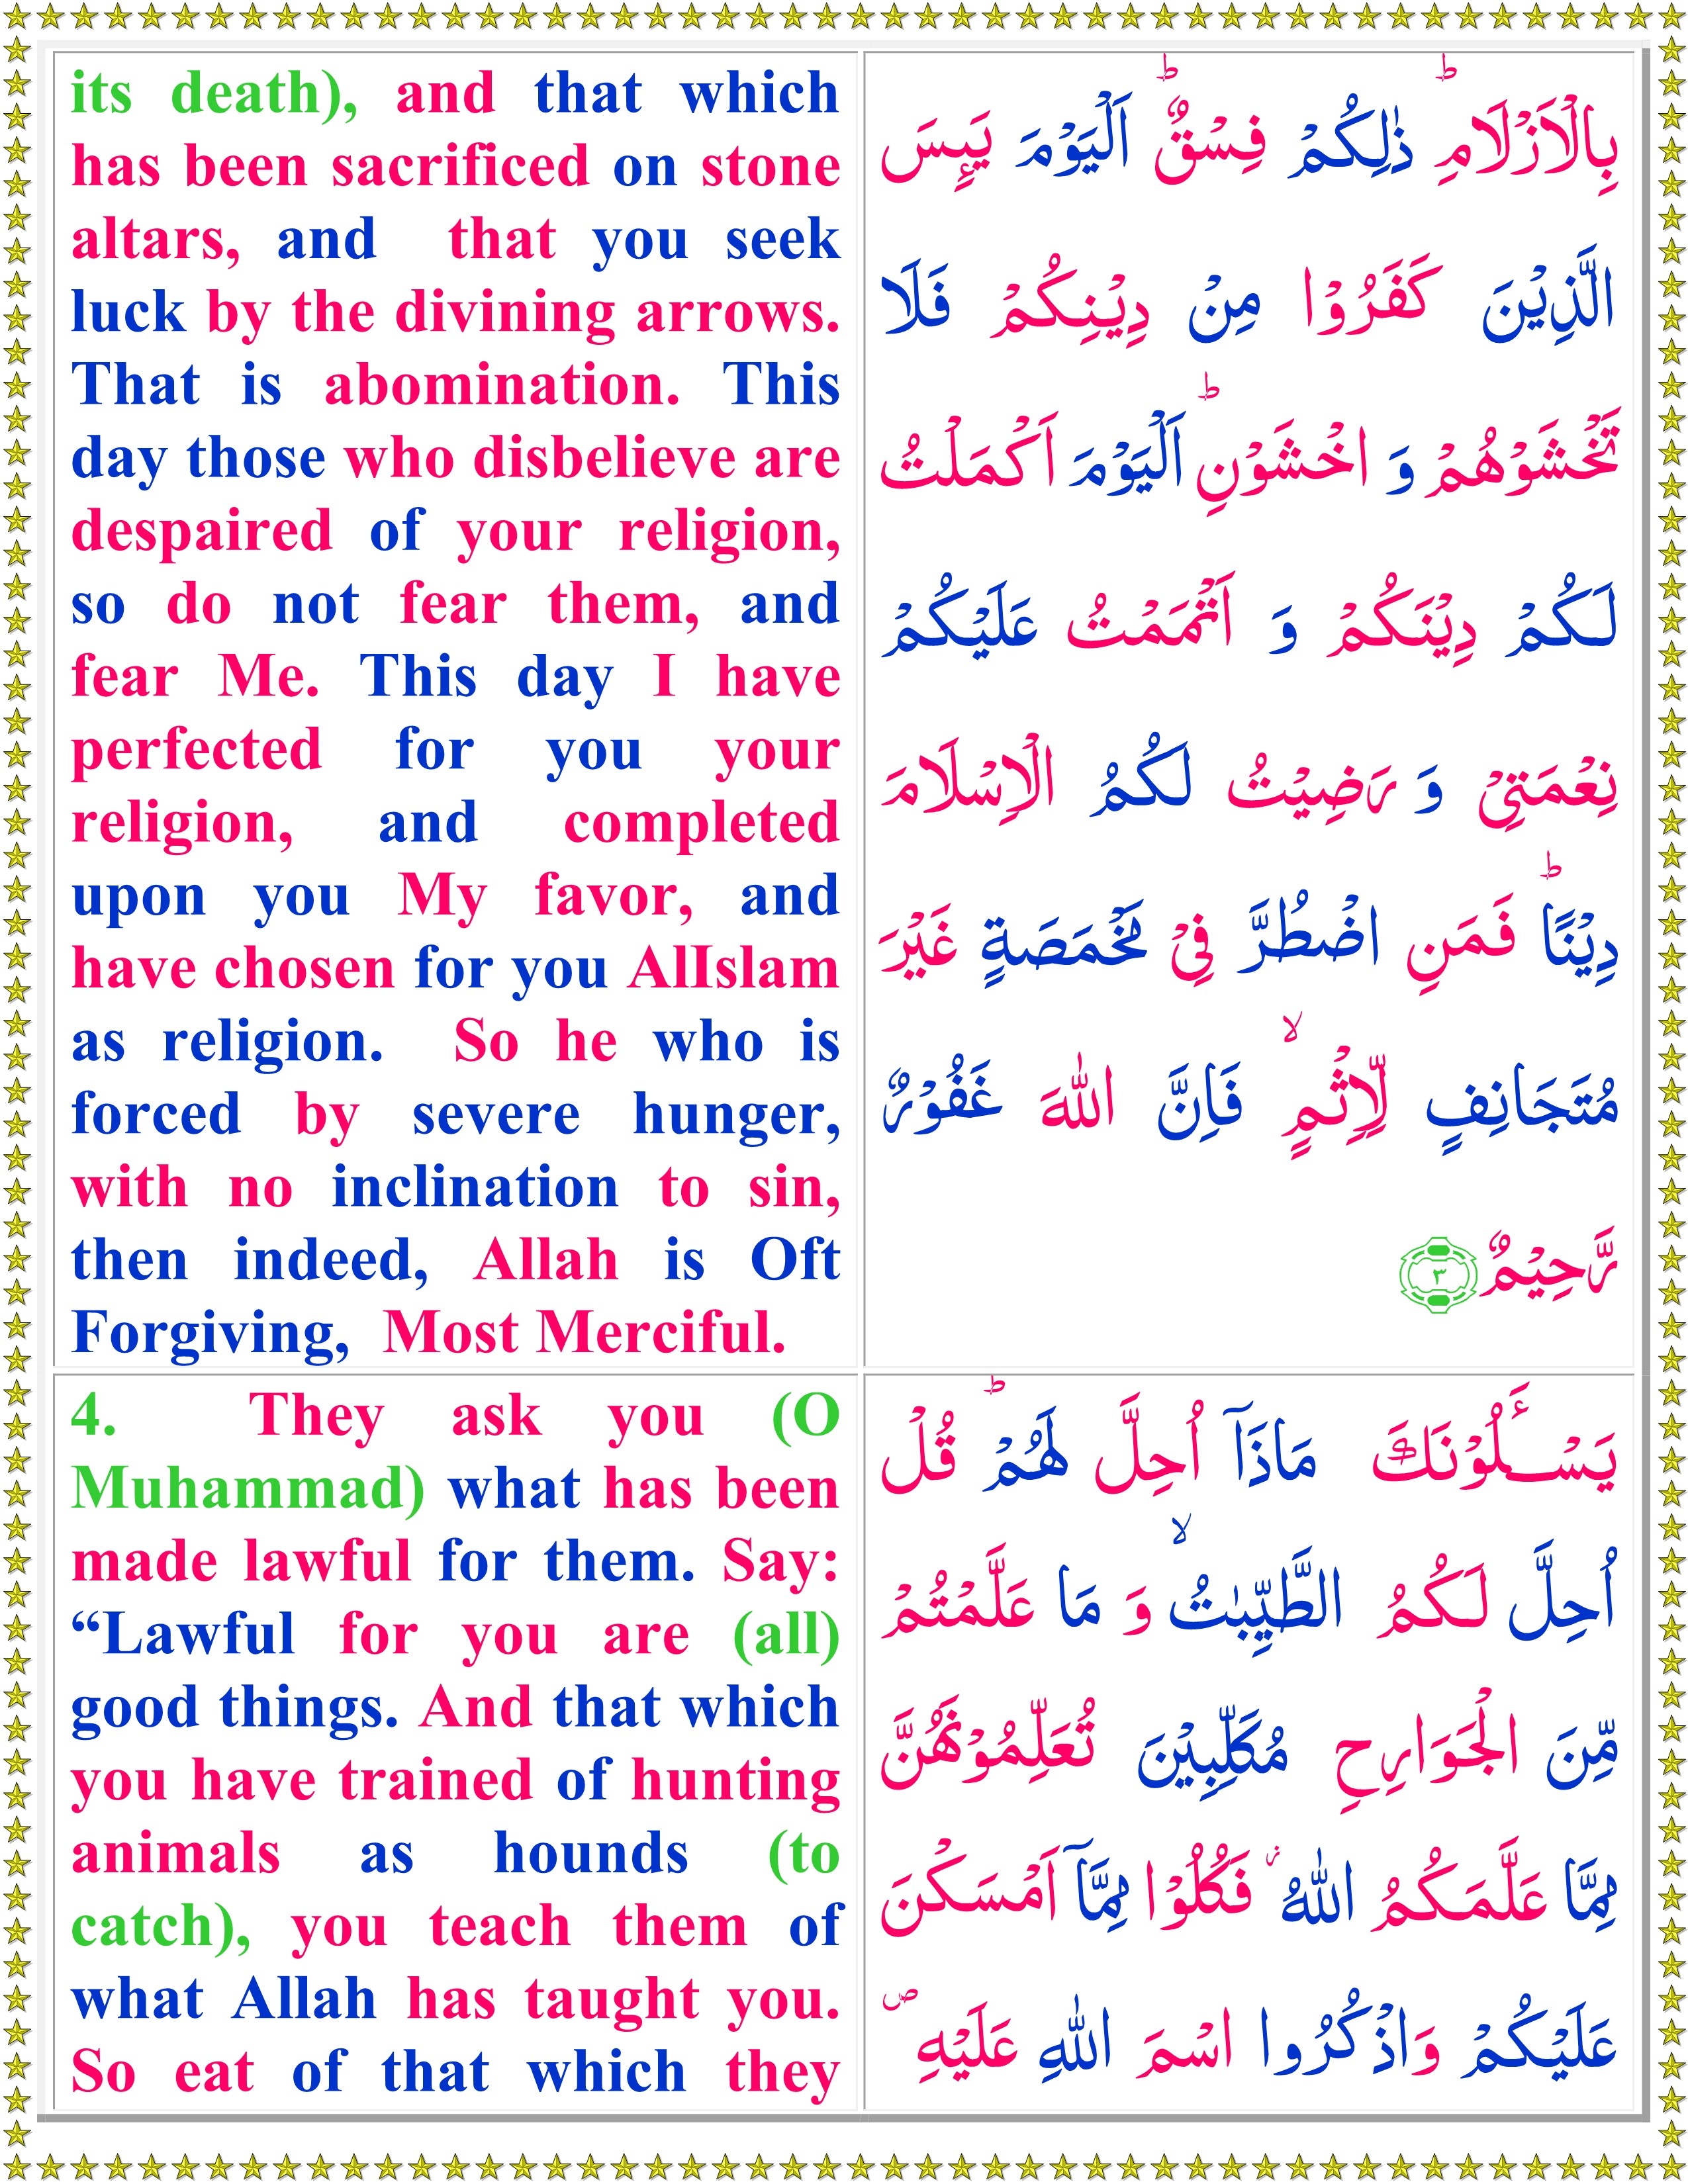 its death), and that which
has been sacrificed on stone
altars, and that you seek
luck by the divining arrows.
That is abomination. This
day those who disbelieve are
despaired of your religion,
so do not fear them, and
fear Me. This day I have
perfected for you your
religion, and completed
upon you My favor, and
have chosen for you AlIslam
as religion. So he who is
forced by severe hunger,
with no inclination to sin,
then indeed, Allah is Oft
Forgiving, Most Merciful.
بِالۡاَزۡلَامِ‌ ؕ ذٰ لِكُمۡ فِسۡقٌ‌ ؕ اَلۡيَوۡمَ يَٮِٕسَ
الَّذِيۡنَ كَفَرُوۡا مِنۡ دِيۡنِكُمۡ فَلَا
تَخۡشَوۡهُمۡ وَ اخۡشَوۡنِ‌ ؕ اَلۡيَوۡمَ اَكۡمَلۡتُ
لَـكُمۡ دِيۡنَكُمۡ وَ اَتۡمَمۡتُ عَلَيۡكُمۡ
نِعۡمَتِىۡ وَ رَضِيۡتُ لَـكُمُ الۡاِسۡلَامَ
دِيۡنًا‌ ؕ فَمَنِ اضۡطُرَّ فِىۡ مَخۡمَصَةٍ غَيۡرَ
مُتَجَانِفٍ لِّاِثۡمٍ‌ۙ فَاِنَّ اللّٰهَ غَفُوۡرٌ
رَّحِيۡمٌ‏ ٣
4. They ask you (O
Muhammad) what has been
made lawful for them. Say:
“Lawful for you are (all)
good things. And that which
you have trained of hunting
animals as hounds (to
catch), you teach them of
what Allah has taught you.
So eat of that which they
يَسۡـَٔـلُوۡنَكَ مَاذَاۤ اُحِلَّ لَهُمۡ‌ؕ قُلۡ
اُحِلَّ لَـكُمُ الطَّيِّبٰتُ‌ ۙ وَ مَا عَلَّمۡتُمۡ
مِّنَ الۡجَـوَارِحِ مُكَلِّبِيۡنَ تُعَلِّمُوۡنَهُنَّ
مِمَّا عَلَّمَكُمُ اللّٰهُ‌ فَكُلُوۡا مِمَّاۤ اَمۡسَكۡنَ
عَلَيۡكُمۡ وَاذۡكُرُوا اسۡمَ اللّٰهِ عَلَيۡهِ‌ ۖ